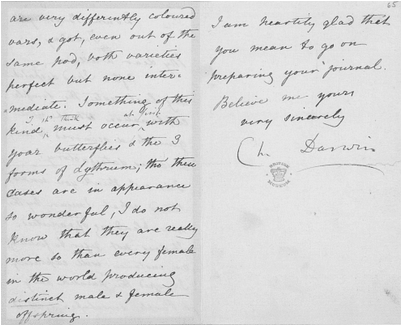 are very differently coloured
vars, & got, even out of the
same pod, both varieties
perfect but none inter-
mediate. Something of this
I sh think at first
kind, must occur, with
your butterflies & the 3
forms of Lythrum; tho' these
cases are in appearance
so wonderful, I do not
know that they are really
more so than every female
in the world producing
distinct male & female
offspring.
65
I am heartily glad that
you mean to go on
preparing your journal.
Believe me yours
very sincerely
Ch. Darwin